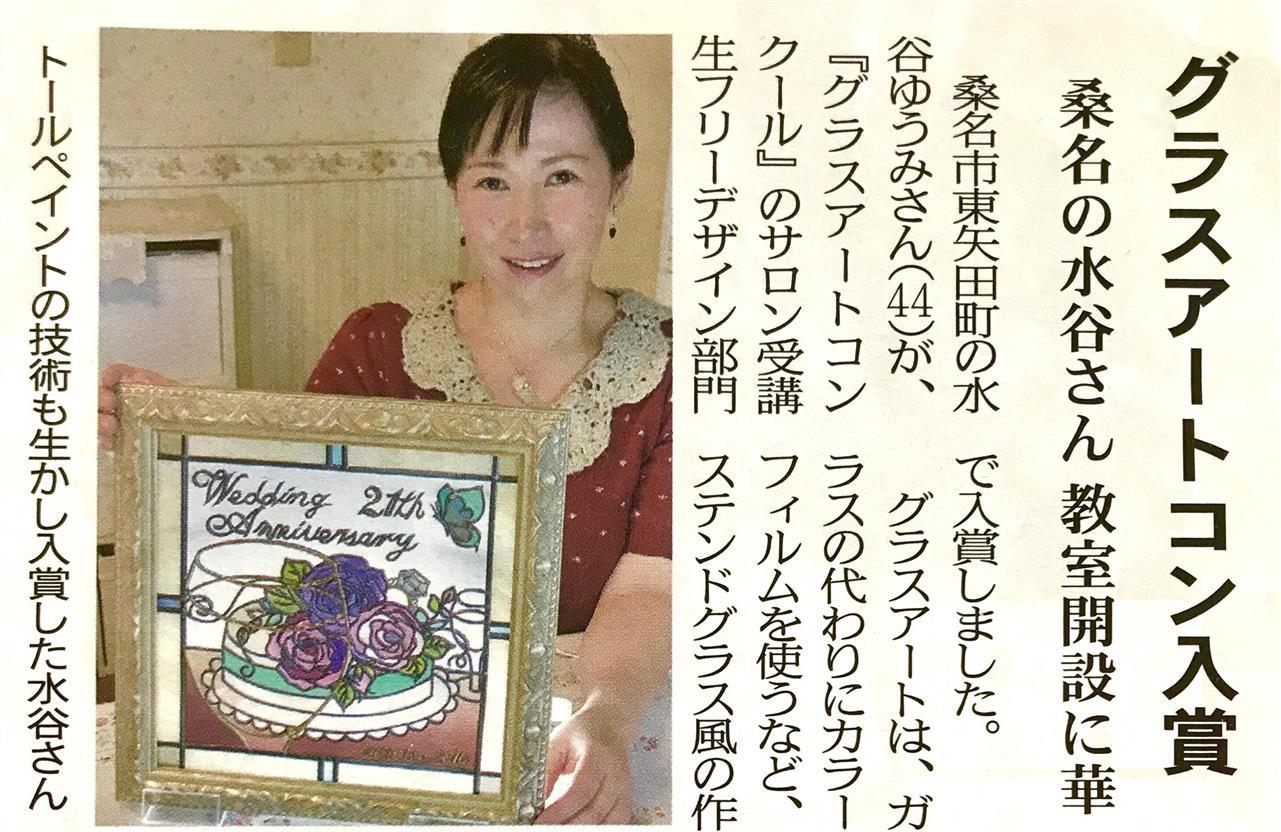 グラスアートコン入賞
桑名の水谷さん 教室開設に華
桑名市東矢田町の水
谷ゆうみさん(44)が、
『グラスアートコン
クール』のサロン受講
生フリーデザイン部門
で入賞しました。
グラスアートは、ガ
ラスの代わりにカラー
フィルムを使うなど、
ステンドグラス風の作
Wedding 21th
Anniversary
トールペイントの技術も生かし入賞した水谷さん